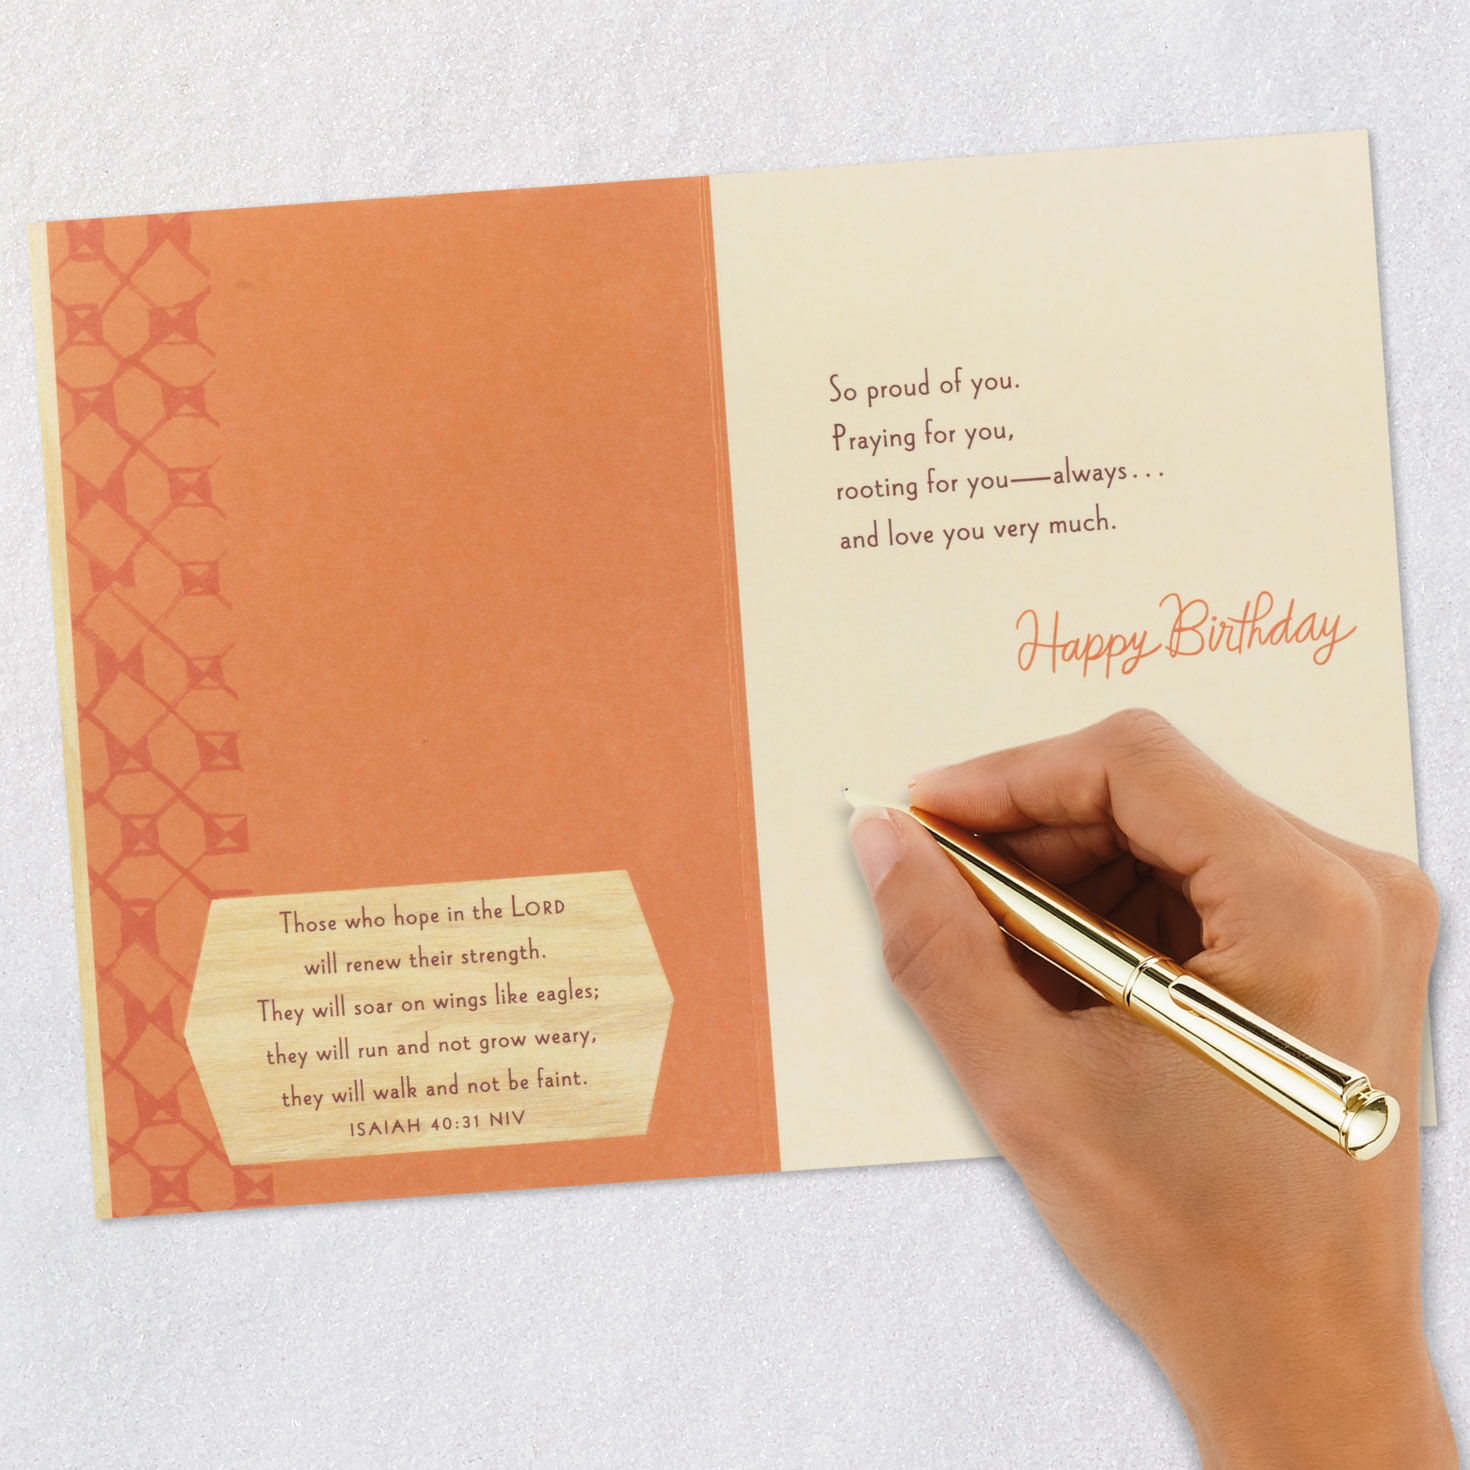 Those who hope in the LORD
will renew their strength.
They will soar on wings like eagles;
they will run and not grow weary,
they will walk and not be faint.
ISAIAH 40:31 NIV
So proud of you.
Praying for you,
rooting for you—always...
and love you very much.
Happy Birthday